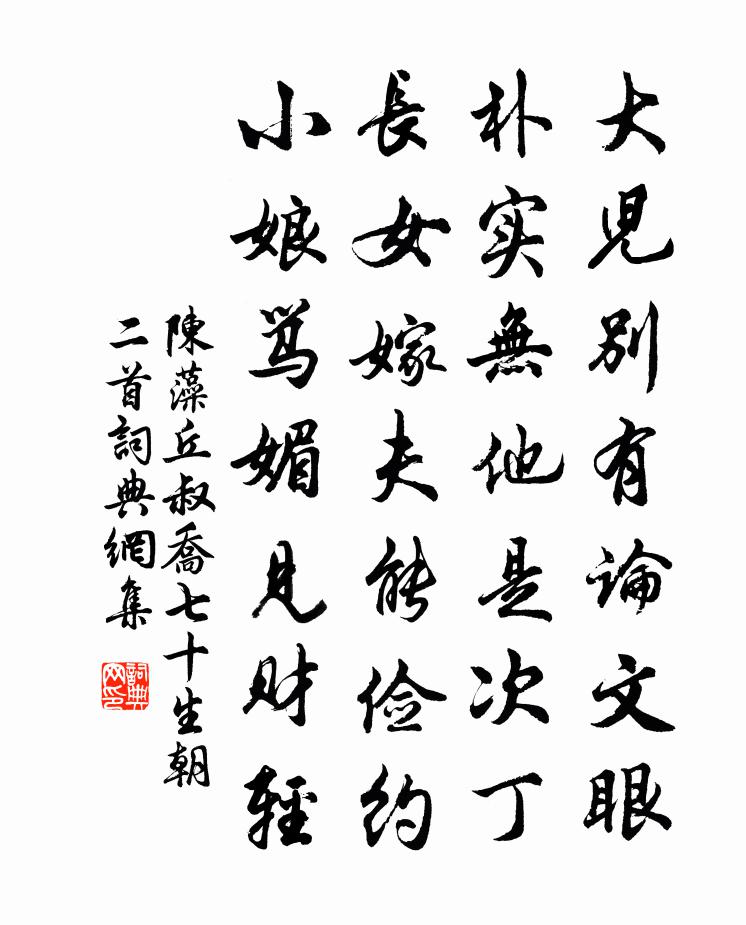 大児別有論文眼
朴实無他是次丁
長女嫁夫能俭约
小娘笃媚見财輕
陳藻丘叔喬七十生朝
二首詞典網集
詞典
网印